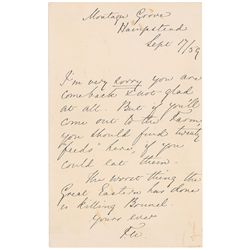 Montague Grove
Hampstead
Sept 17/59
I'm very sorry you are
come back & not glad
at all. But if you'll
come out to the Farm,
you should find twenty
"feeds" here, if you
could eat them.
The worst thing the
Great Eastern has done
is killing Brunel.
Yours ever
F.N.